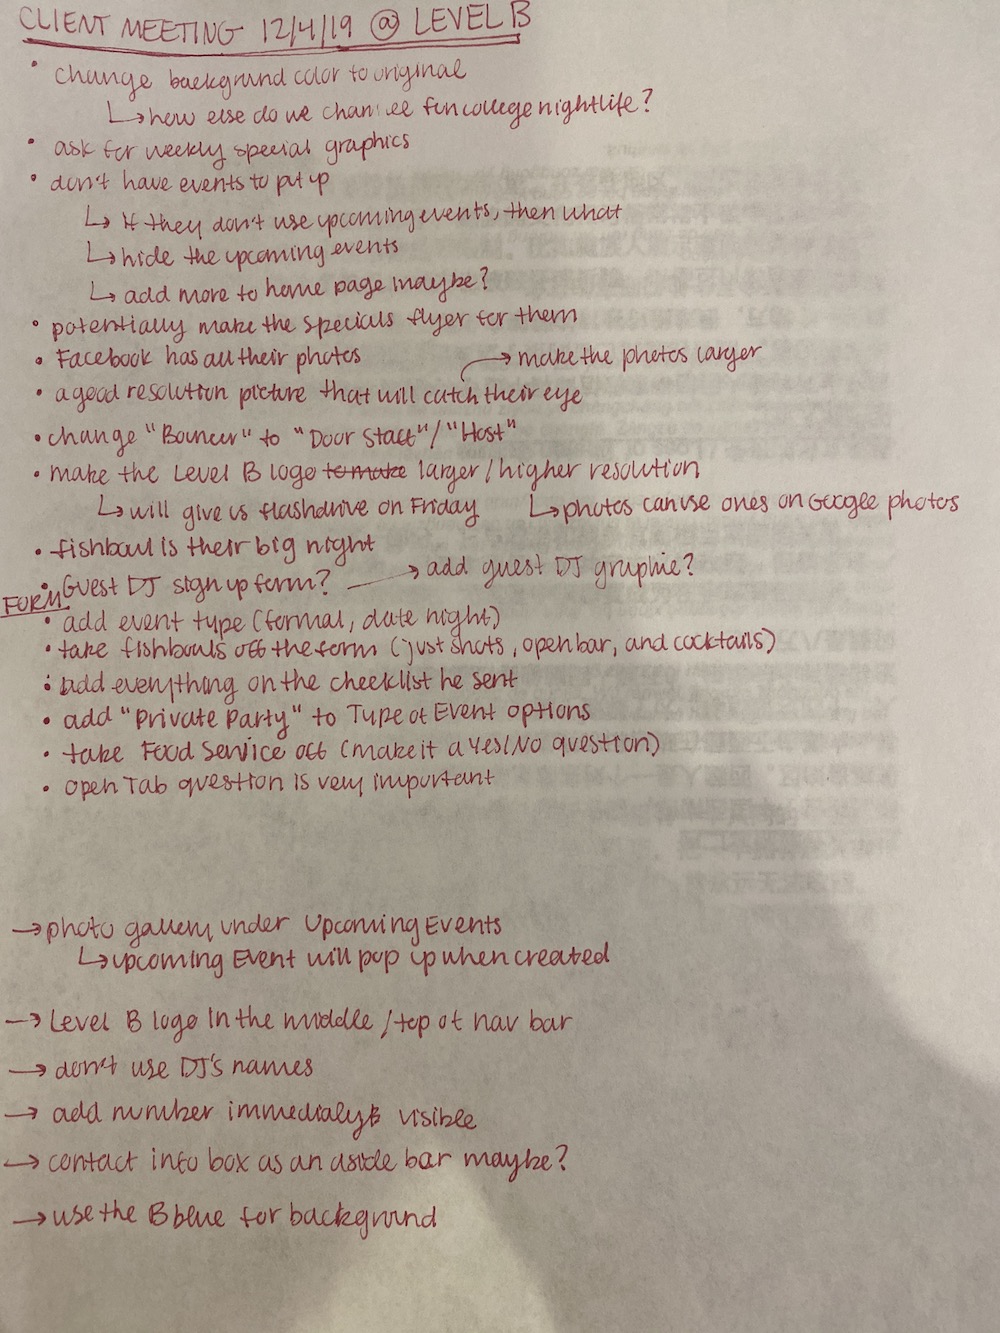 CLIENT MEETING 12/4/19 @ LEVEL B
• change background color to original
↳ how else do we channel fun college nightlife?
• ask for weekly special graphics
• don't have events to put up
↳ If they don't use upcoming events, then what
↳ hide the upcoming events
↳ add more to home page maybe?
• potentially make the specials flyer for them
• Facebook has all their photos → make the photos larger
• a good resolution picture that will catch their eye
• change "Bouncer" to "Door Staff"/"Host"
• make the Level B logo to make larger/higher resolution
↳ will give us flashdrive on Friday ↳ photos can use ones on Google photos
• fishbowl is their big night
• Guest DJ sign up form? → add guest DJ graphic?
FORM
• add event type (formal, date night)
• take fishbowls off the form (just shots, open bar, and cocktails)
• add everything on the checklist he sent
• add "Private Party" to Type of Event options
• take Food Service off (make it a Yes/No question)
• Open Tab question is very important
→ photo gallery under Upcoming Events
↳ upcoming Event will pop up when created
→ Level B logo in the middle/top of nav bar
→ don't use DJ's names
→ add number immedialy visible
→ contact info box as an aside bar maybe?
→ use the B blue for background